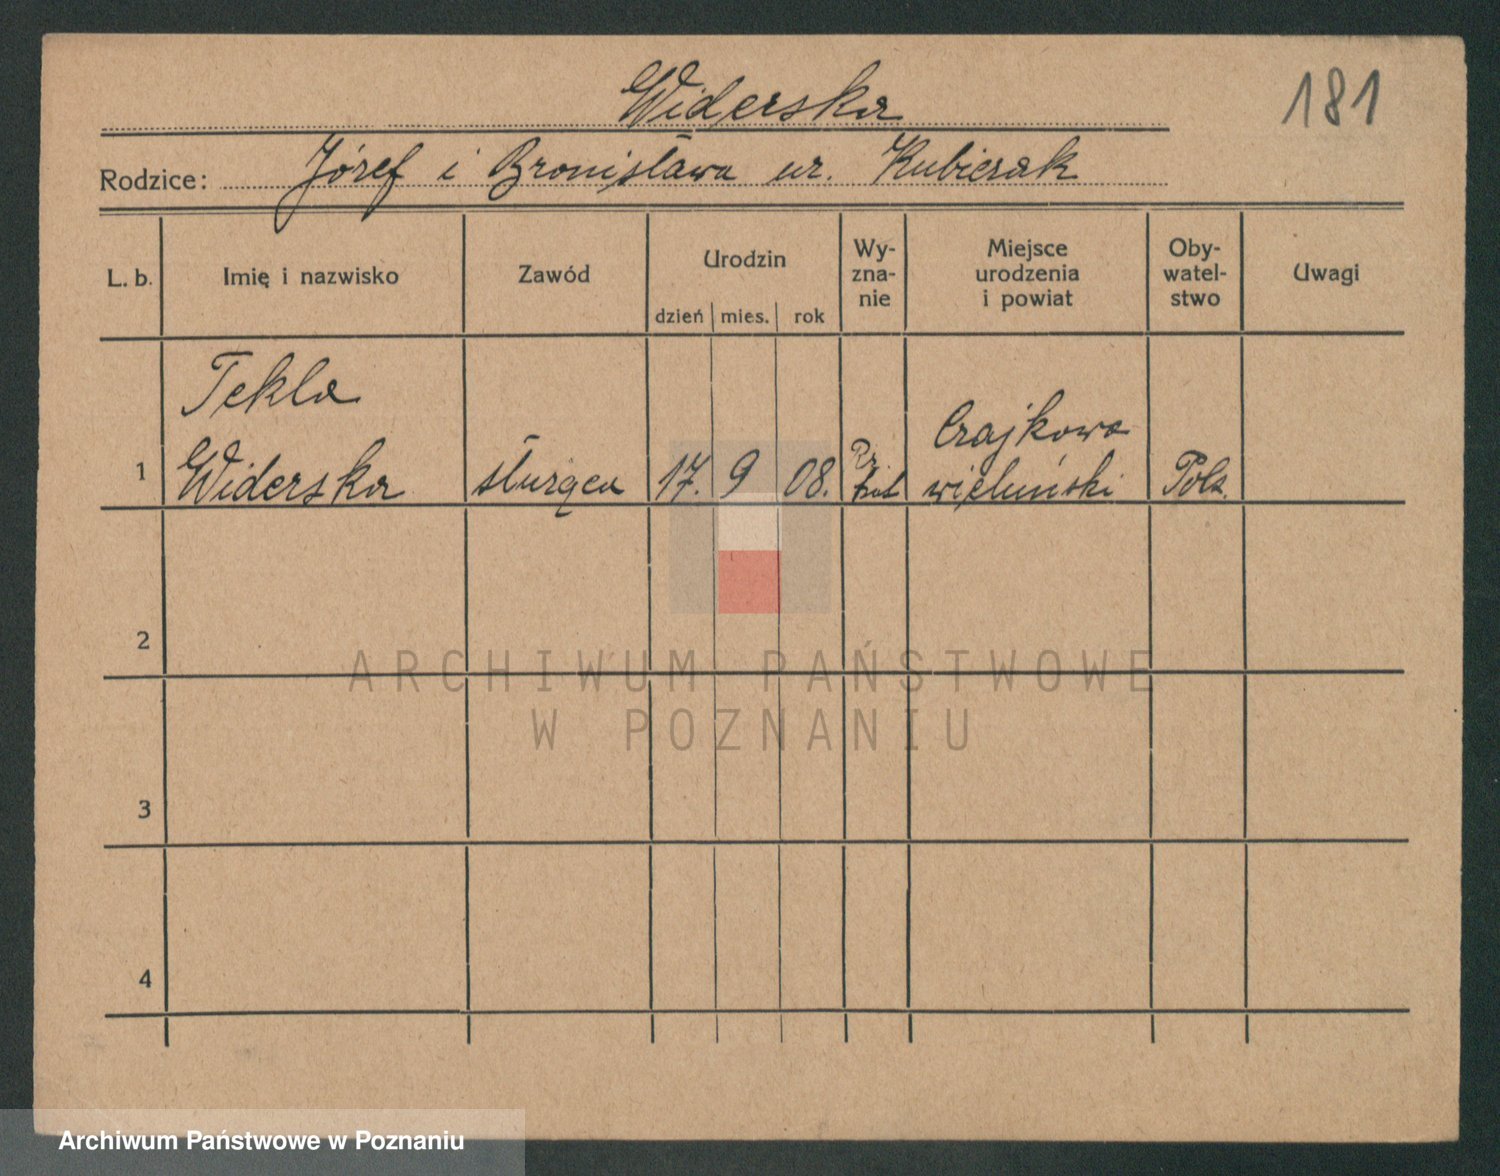 Widerska
181
Rodzice: Józef i Bronisława ur. Kubiczak
L. b.
Imię i nazwisko
Zawód
Urodzin
dzień
mies.
rok
Wy-
zna-
nie
Miejsce
urodzenia
i powiat
Oby-
watel-
stwo
Uwagi
1
Tekla
Widerska
służąca
17.
9
08.
Rz
kat
wieluński
Pols.
2
3
4
ARCHIWUM PAŃSTWOWE
W POZNANIU
Archiwum Państwowe w Poznaniu